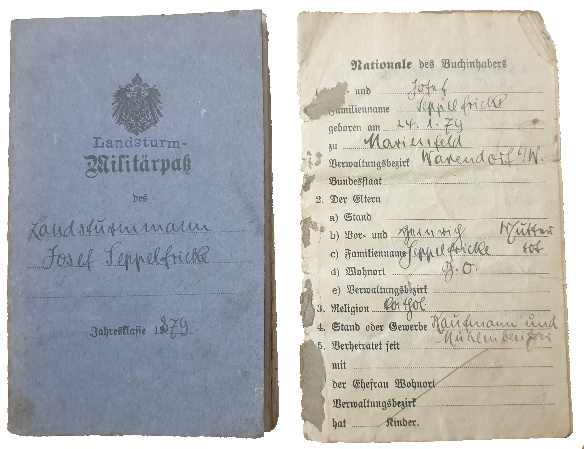 Landsturm-
Militärpaß
des
Landsturmmann
Josef Seppelfricke
Jahresklasse 1879
Nationale des Buchinhabers
1. und Josef
Familienname Seppelfricke
geboren am 24. 1. 79
zu Marienfeld
Verwaltungsbezirk Warendorf i/W.
Bundesstaat
2. Der Eltern
a) Stand
b) Vor- und Heinrich Mutter
c) Familienname Seppelfricke tot
d) Wohnort
e) Verwaltungsbezirk
3. Religion kathol
4. Stand oder Gewerbe Kaufmann und
5. Verheiratet seit Mühlenbesitzer
mit
der Ehefrau Wohnort
Verwaltungsbezirk
hat Kinder.